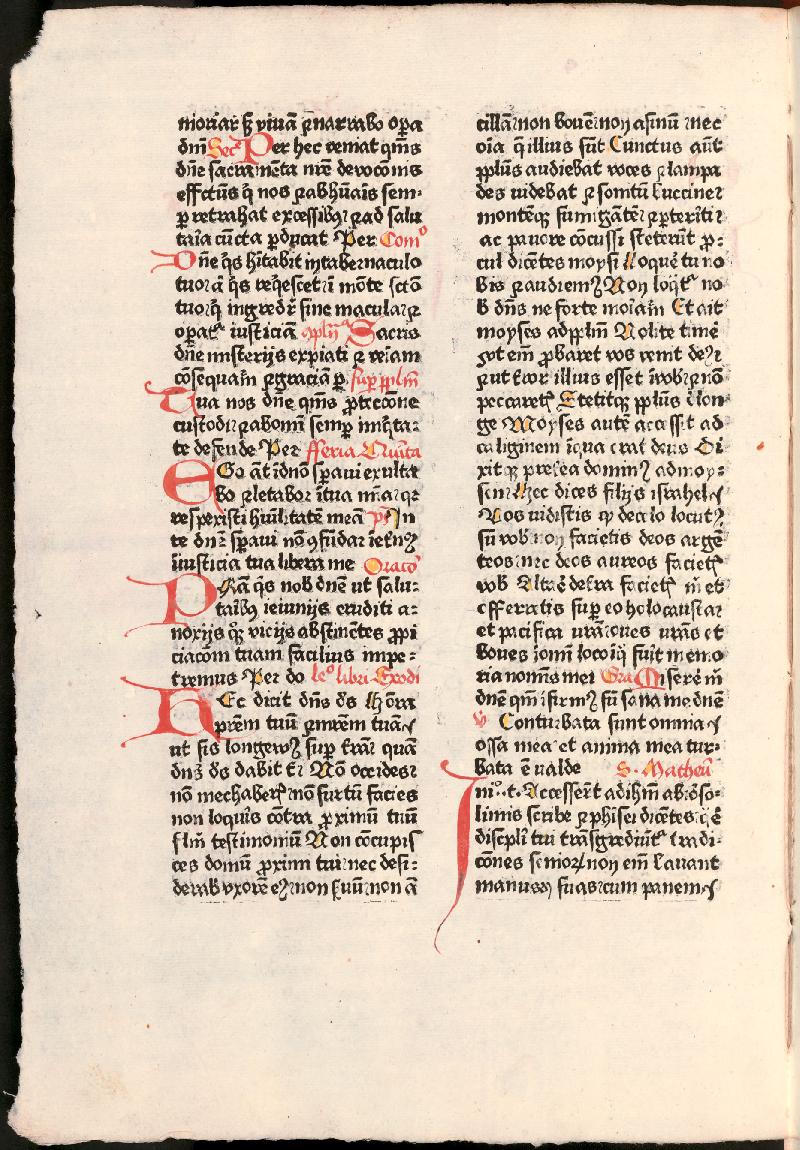 moriar sꝫ viuā ⁊ narrabo oꝑa
dn̄i Secᵃ Per hec veniat qm̄s
dn̄e sacramēta nr̄e deuocōnis
effctūs q̄ nos ⁊ abhūaīs sem⸗
ꝑ retrahat excessibꝫ ⁊ ad salu
taīa cūcta ꝑducat Per Comᵒ
Dn̄e q̄s hītabit in tabernaculo
tuo ⁊ ā q̄s reqͥescet ī mōte sctō
tuo qͥ ingredr̄ sine macula ⁊
oꝑatᷣ iusticiā 9plīᵃ Sacris
dn̄e misterijs expiati ⁊ veīam
cōsequaīn ⁊ graciā ꝑ. suꝑ pplm̄
Tua nos dn̄e qm̄s ꝓteccōne
custodi ⁊ abomī semꝑ inīꝗta⸗
te defende Per fferia Quīta
Ego āt ī dnō sꝑaui exulta
bo ⁊ letabor ī tua mīa qꝛ
respexisti hūilitatē meā pᷤ In
te dn̄e sꝑaui nō 9fundar ī etnꝫ
ī iusticia tua libera me Oracō
Prā q̄s nob dn̄e ut salu⸗
taībꝫ ieiunijs eruditi a⸗
noxijs qꝫ vicijs abstinētes ꝓpi
ciacōm tuam facilius impe⸗
tremus Per do leᵒ libri Exodi
Hec dicit dn̄s ds̄ Honora
pr̄em tuū ⁊ mr̄em tuā
ut sis longeuꝫ suꝑ trā quā
dn̄s ds̄ dabit t͛ Nō occides
nō mechaberꝭ nō furtū facies
non loquīs cōtra ꝓximū tuū
flm̄ testimoniū Non cōcupis
ces domū ꝓximi tui nec desi⸗
derab vxorē eꝫ non ẜuū non ā
cillā non bouē non asinū nec
oīa q̄ illius sūt Cunctus aūt
pplus audiebat voces ⁊ lampa
des uidebat ⁊ somtū buccine
montēqꝫ fumigātē ⁊ ꝑteriti
ac pauore cōcussi steterūt ꝓ⸗
cul dicētes moysi Loquē tu no
bis ⁊ audiemꝫ Non loqͥtᷣ no
b dn̄s ne forte moīaīn Et ait
moyses ad pplm̄ Nolite timē
⁊ ut em̄ ꝓbaret vos venit de⁹
⁊ ut tror illius esset ī vob ⁊ nō
peccaretꝭ Stetitqꝫ pplus d̄ lon
ge Moyses autē accessit ad
caliginem ī qua erat deus Di
xitqꝫ preterea dominꝫ ad moy⸗
sen Hec dices filijs israhel
Vos uidistis ꝙ de celo locutꝫ
sū vob non facietis deos argē
teos nec deos aureos facietꝭ
vob Altaē de tra facietꝭ m̄ et
offeretis suꝑ eo holocausta
et pacifica urā oues urās et
boues ī omī loco ī q̄ fuit memo
ria nominis mei Gra Miserē m̄
dn̄e qm̄ ī firmꝫ sū sana me dn̄e
v̄ Conturbata sunt omnia
ossa mea et anima mea tur⸗
bata ē ualde S. Matheū
In i. t. Accesserūt ad ihm̄ ab ieroso⸗
limis scribe ⁊ phisei dicētes q̄ē
discipli tui trāsgrediūtᷣ tradi⸗
cōnes seniorꝝ non em̄ lauant
manus suas cum panem